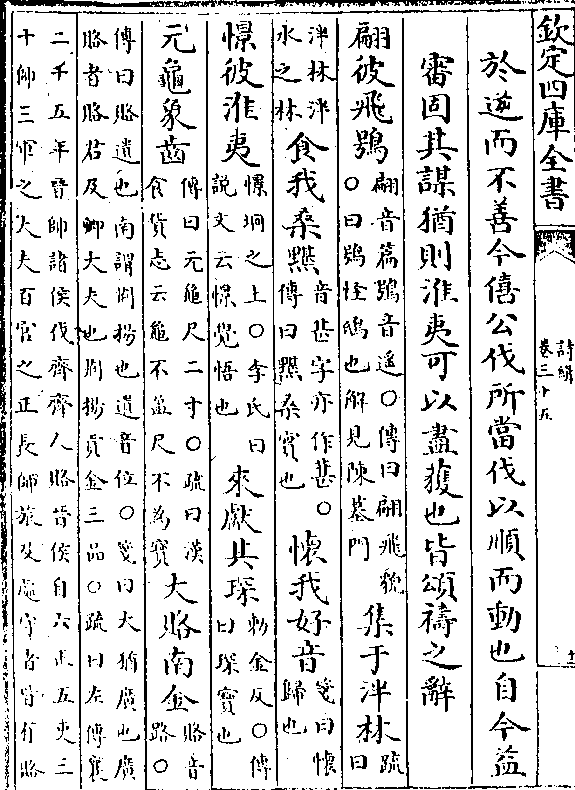 欽定四庫全書
詩緝
卷三十五
於逆而不善今僖公伐所當伐以順而動也自今益
審固其謀猶則淮夷可以盡獲也皆頌禱之辭
翩彼飛鴞翩音篇鴞音遥○傳曰翩飛貌○曰鴞怪鴟也解見陳墓門集于泮林疏曰
泮林泮水之林食我桑黮音甚字亦作葚○傳曰黮桑實也懷我好音箋曰懷歸也
憬彼淮夷憬坰之上○李氏曰説文云憬覺悟也來獻其琛勑金反○傳曰琛寳也
元龜象齒傳曰元龜尺二寸○疏曰漢食貨志云龜不盈尺不為寳大賂南金賂音路○
傳曰賂遺也南謂荆揚也遺音位○箋曰大猶廣也廣
賂者賂君及卿大夫也荆揚貢金三品○疏曰左傳襄
二十五年晉師諸侯伐齊齊人賂晉侯自六正五吏三
十帥三軍之大夫百官之正長師旅及處守者皆有賂